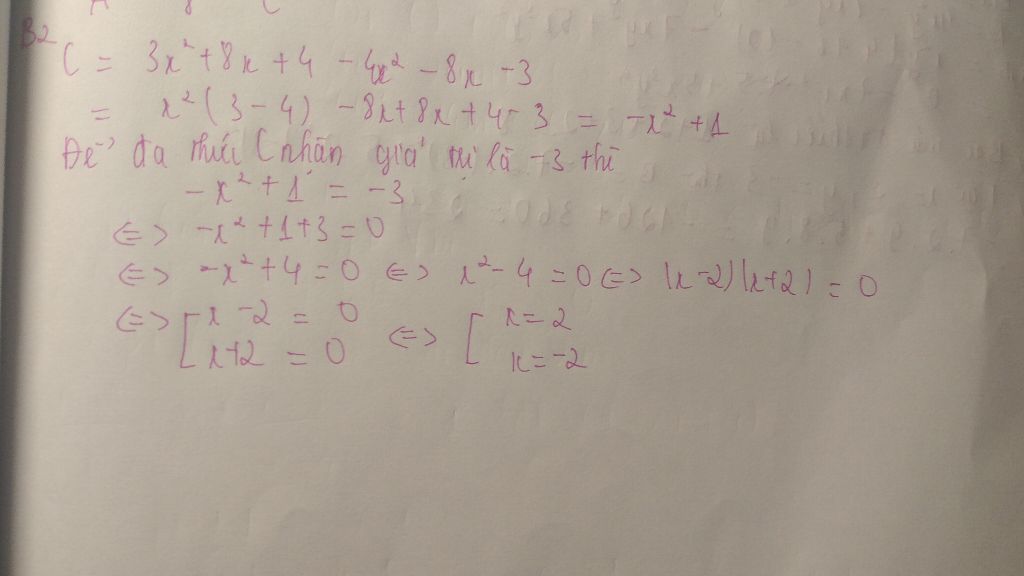 B2
C = 3x² + 8x + 4 - 4x² - 8x - 3
= x²(3 - 4) - 8x + 8x + 4 - 3 = -x² + 1
Để đa thức C nhận giá trị là -3 thì
-x² + 1 = -3
<=> -x² + 1 + 3 = 0
<=> -x² + 4 = 0 <=> x² - 4 = 0 <=> (x - 2)(x + 2) = 0
<=> [ x - 2 = 0 <=> [ x = 2
x + 2 = 0 x = -2